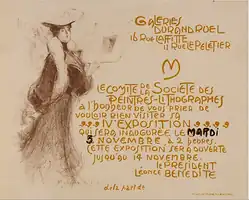 GALERIES
DURAND RUEL
16 RUE LAFFITTE
11 RUE LE PELETIER
LE COMITÉ DE LA SOCIÉTÉ DES
PEINTRES-LITHOGRAPHES
A L'HONNEUR DE VOUS PRIER DE
VOULOIR BIEN VISITER SA
IVe EXPOSITION
QUI SERA INAUGURÉE LE MARDI
5 NOVEMBRE, A 2 HEURES.
CETTE EXPOSITION SERA OUVERTE
JUSQU'AU 14 NOVEMBRE.
LE PRÉSIDENT
LÉONCE BENEDITE
de la part de